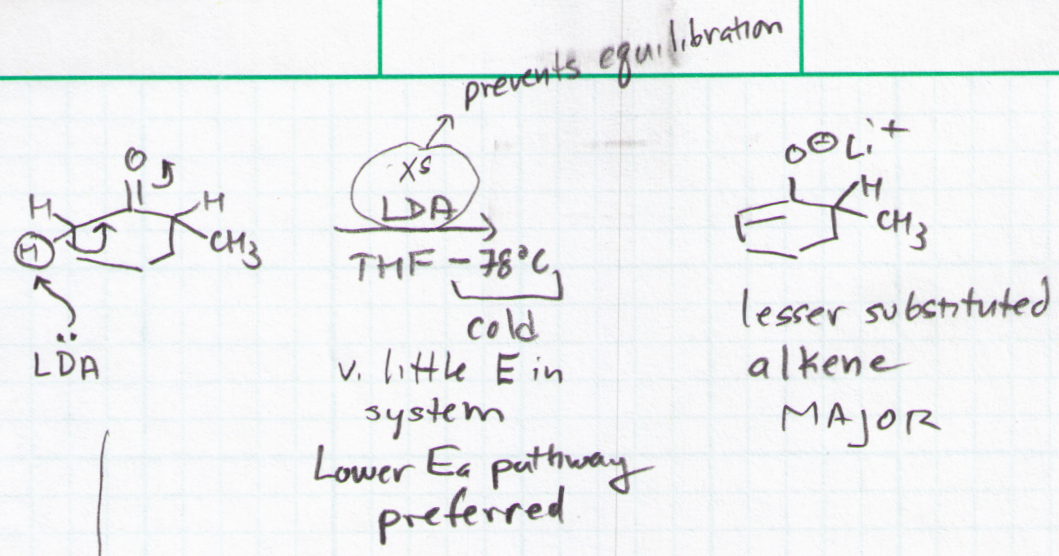 prevents equilibration
xs
LDA
THF -78°C
cold
v. little E in
system
Lower Ea pathway
preferred
O
H
H
H
CH3
LDA
O⊖ Li+
H
CH3
lesser substituted
alkene
MAJOR